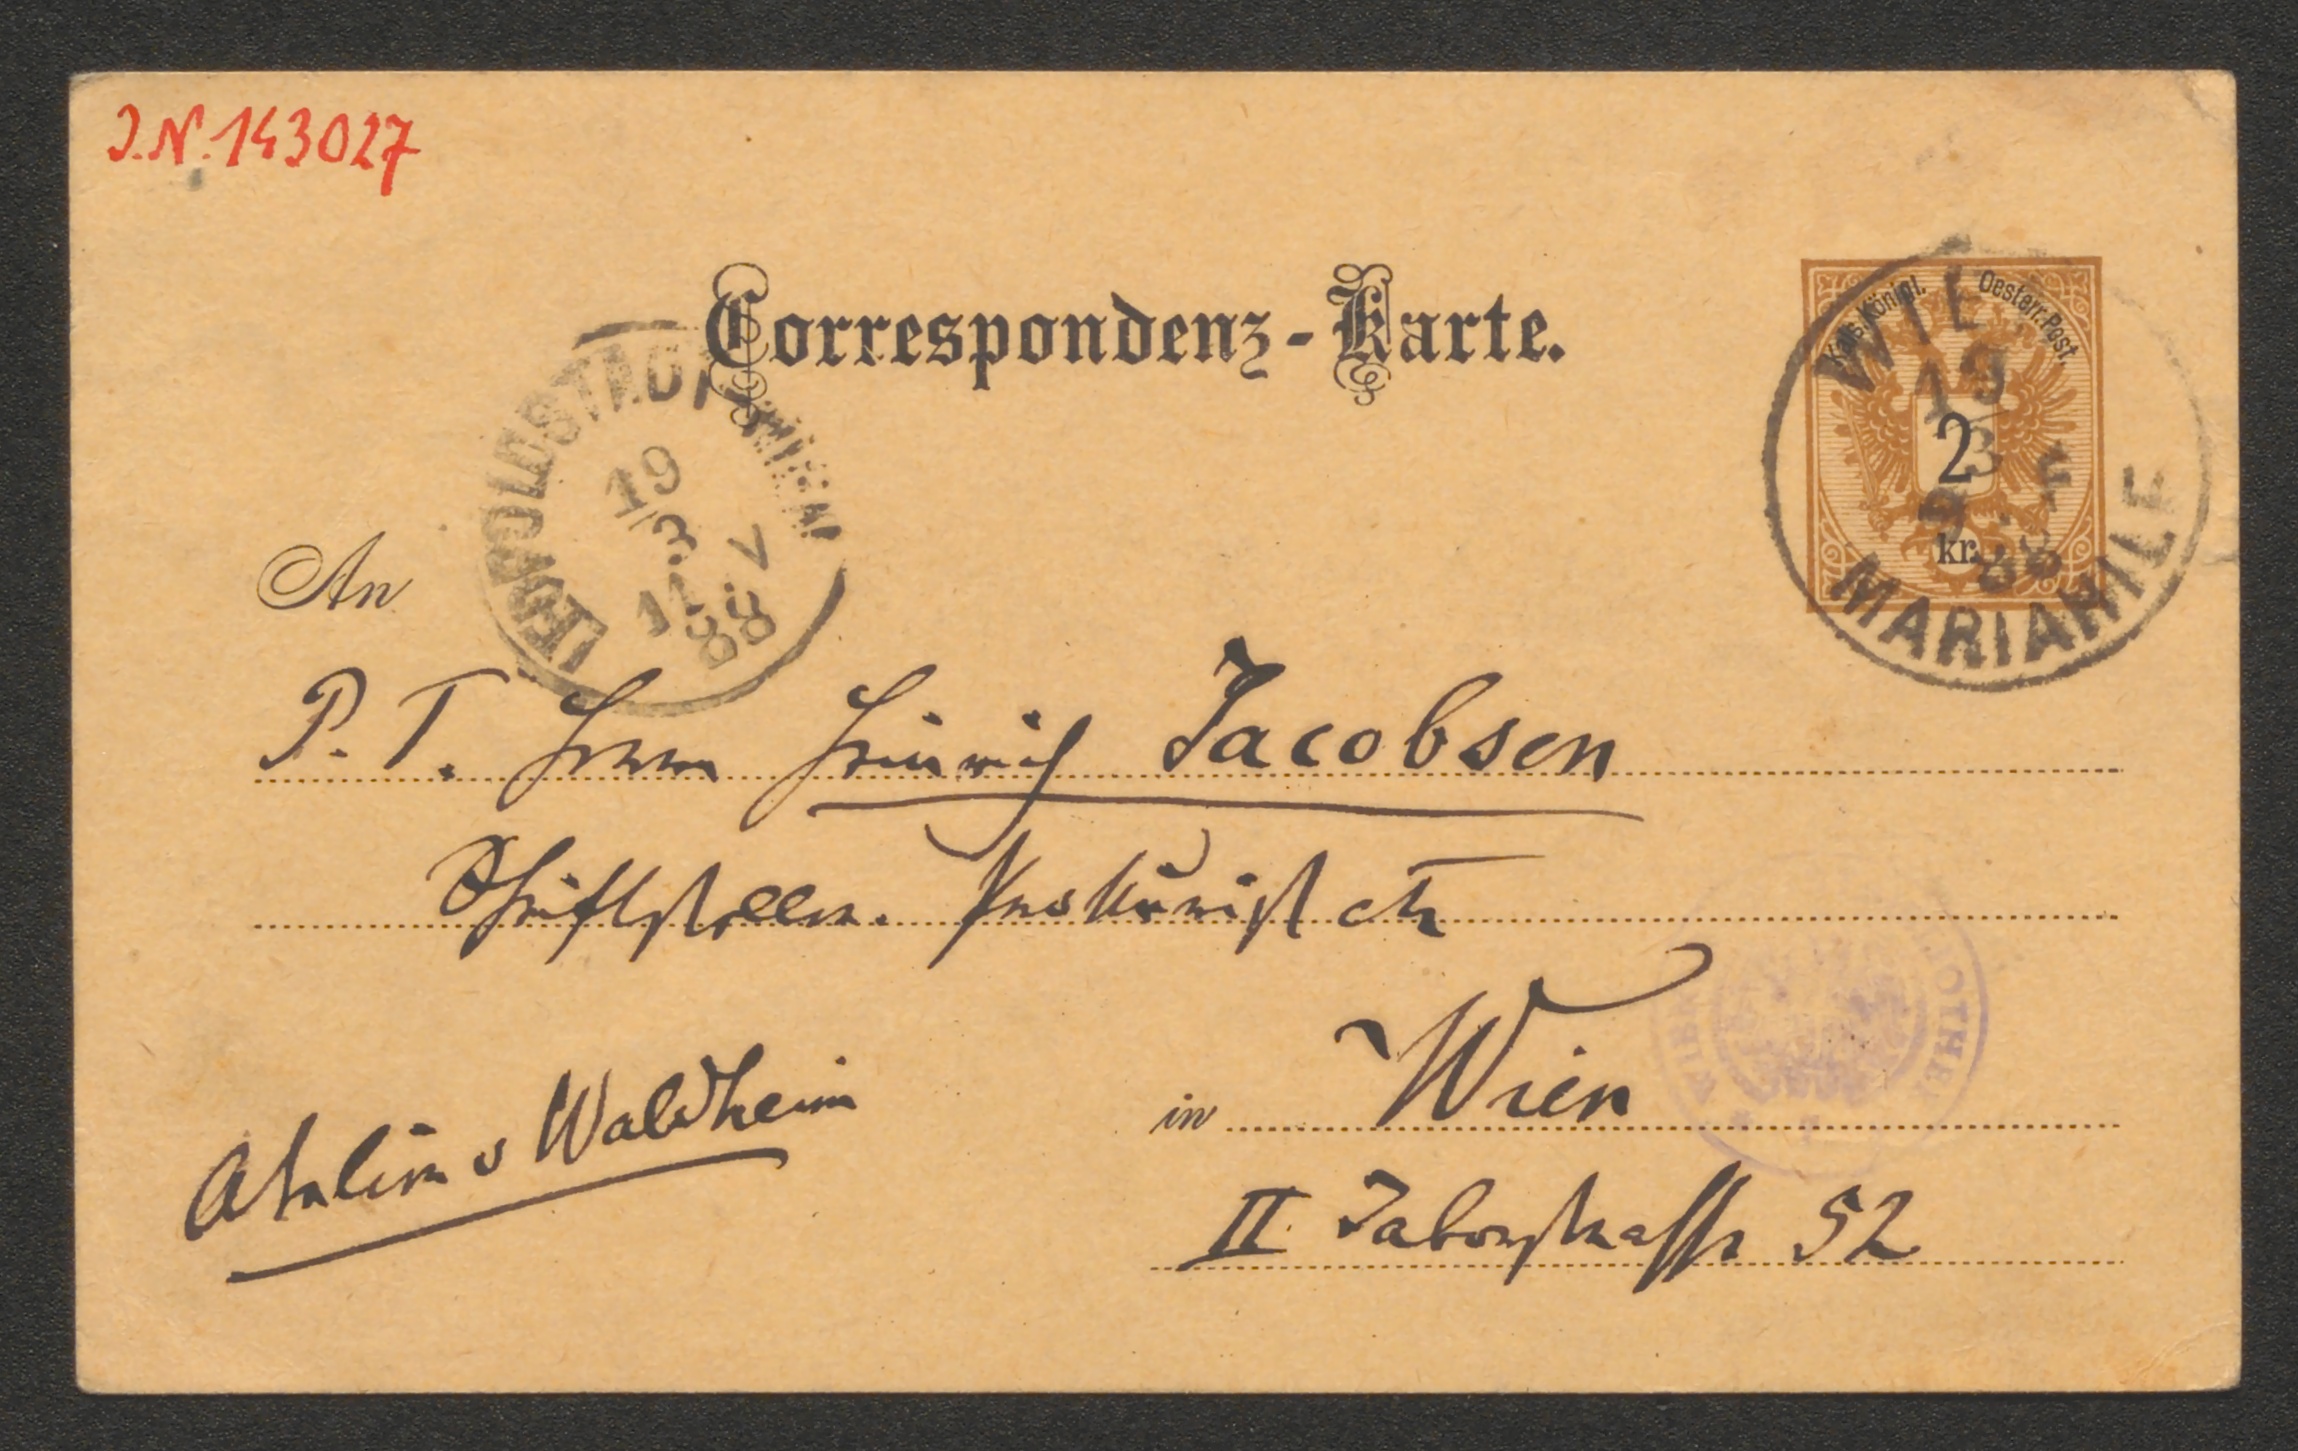 J.N. 143027
Correspondenz-Karte.
Kais. Königl. Oesterr. Post.
2
kr.
WIEN
19
3
88
MARIAHILF
LEOPOLDSTADT WIEN
19
3
11 V
88
An
P. T. Herrn Heinrich Jacobsen
Schriftsteller. Prokurist etc
in Wien
II. Taborstrasse 52
Atelier v Waldheim